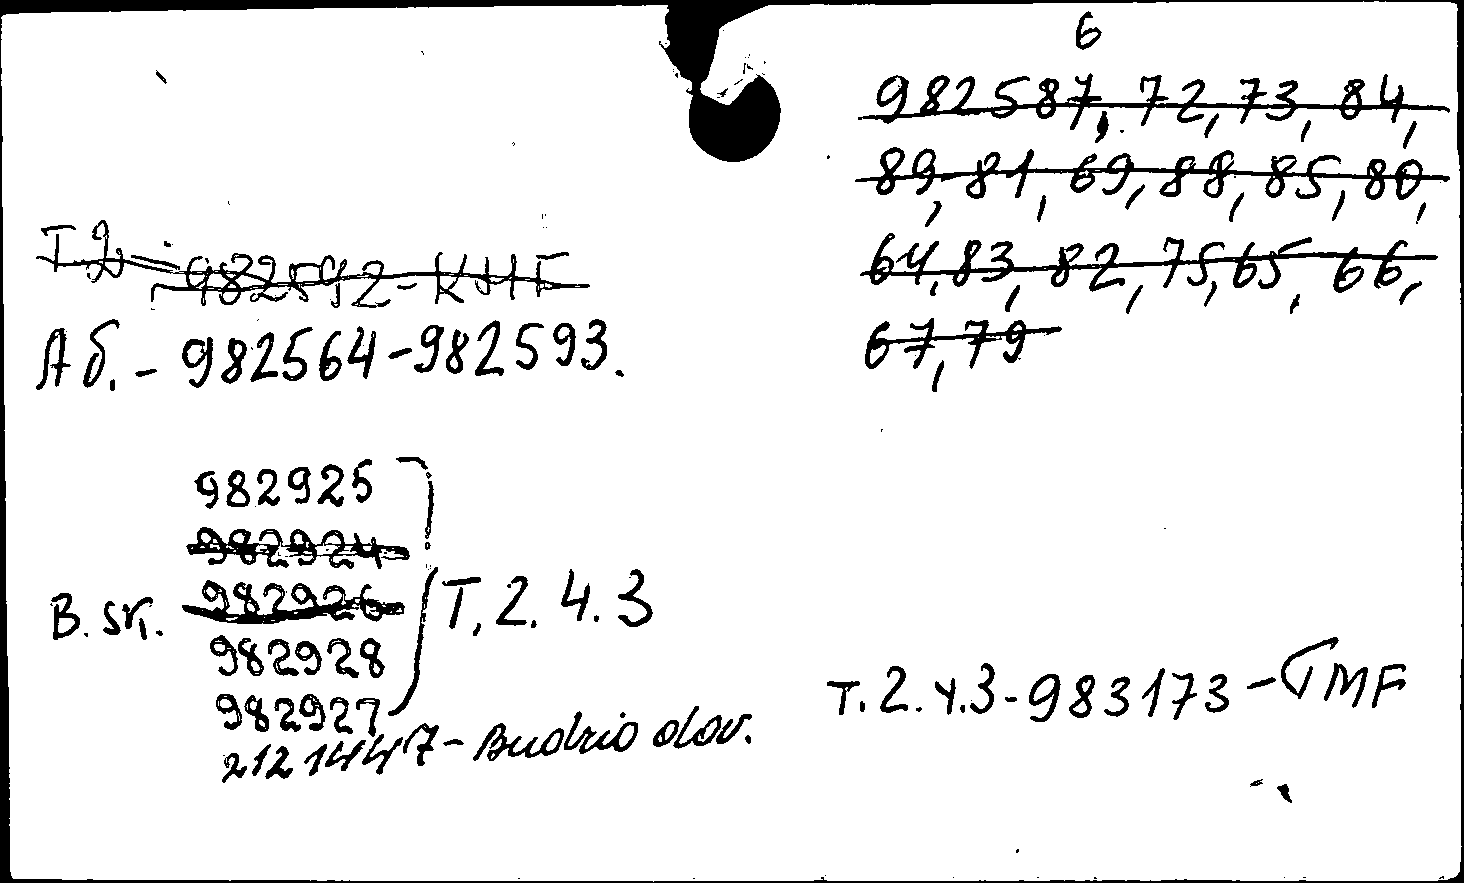 6
982587, 72, 73, 84,
89, 81, 69, 88, 85, 80,
64, 83, 82, 75, 65, 66,
67, 79
T 2 - 982592 - КНГ
Аб. - 982564-982593.
982925
982924
982926
B. sr. T. 2. 4. 3
982928
982927
2121447 - Budrio dov.
T. 2. ч. 3 - 983173 -